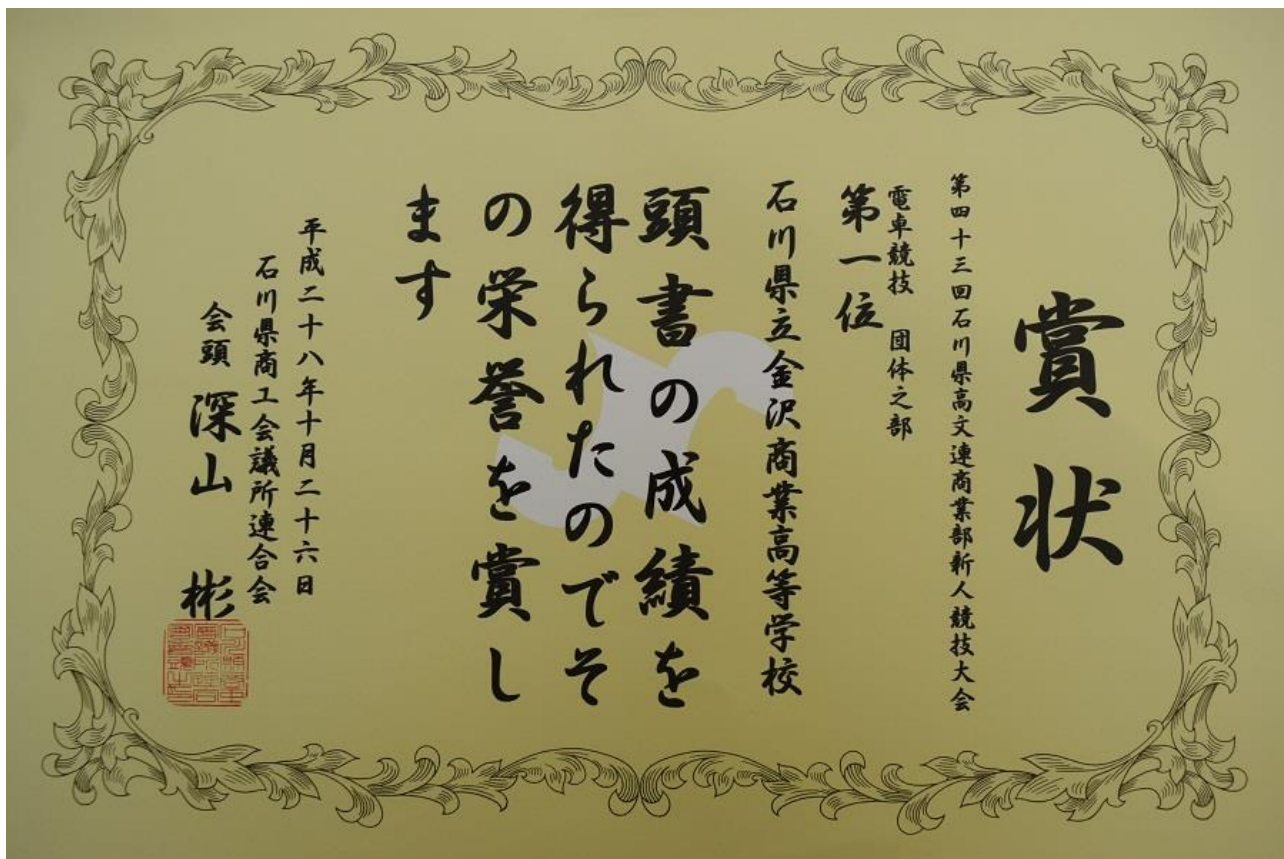 賞状
第四十三回石川県高文連商業部新人競技大会
電卓競技 団体之部
第一位
石川県立金沢商業高等学校
頭書の成績を
得られたのでそ
の栄誉を賞し
ます
平成二十八年十月二十六日
石川県商工会議所連合会
会頭 深山 彬